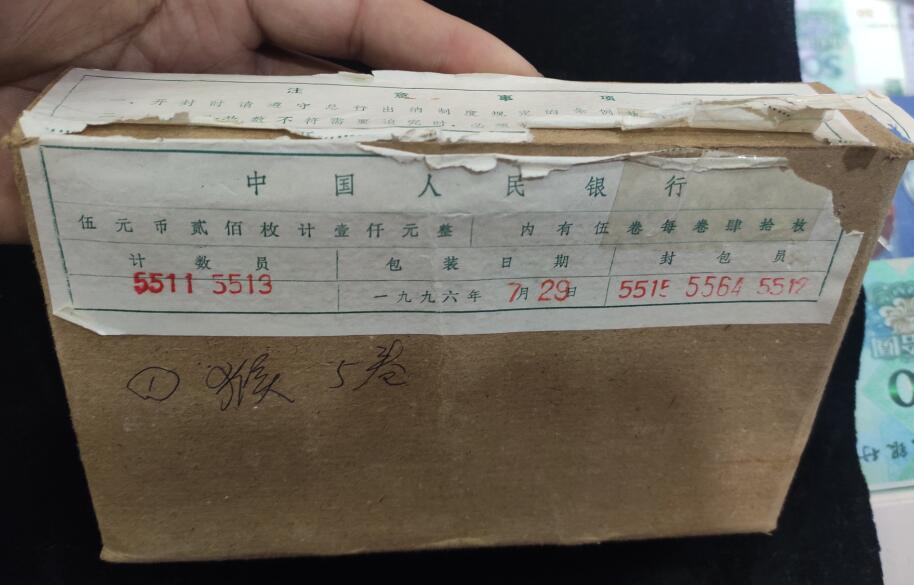 注意事项
一、开封时请遵守总行出纳制度规定的
数不符需要追究时
中国人民银行
伍元币贰佰枚计壹仟元整 内有伍卷每卷肆拾枚
计数员 包装日期 封包员
5511 5513 一九九六年7月29日 5515 5564 5512
① 猴 5卷